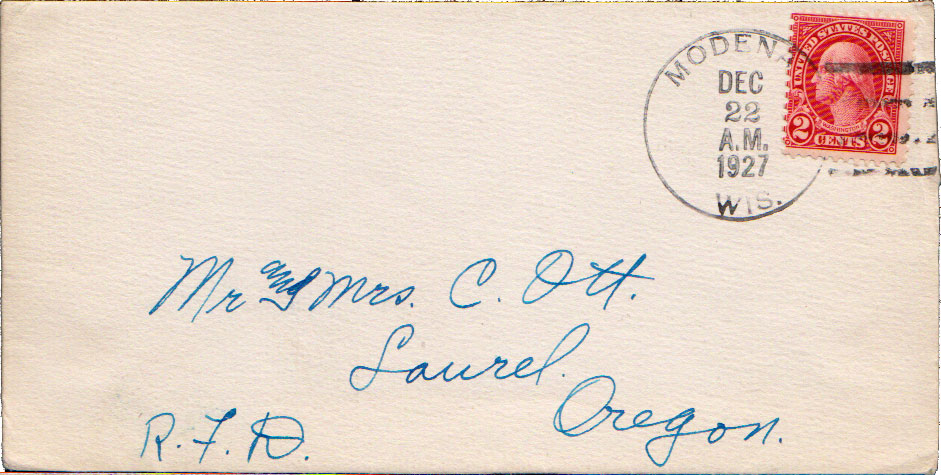 MODENA
DEC
22
A.M.
1927
WIS.
UNITED STATES POSTAGE
WASHINGTON
2 CENTS 2
Mr and Mrs. C. Ott.
Laurel.
Oregon.
R.F.D.